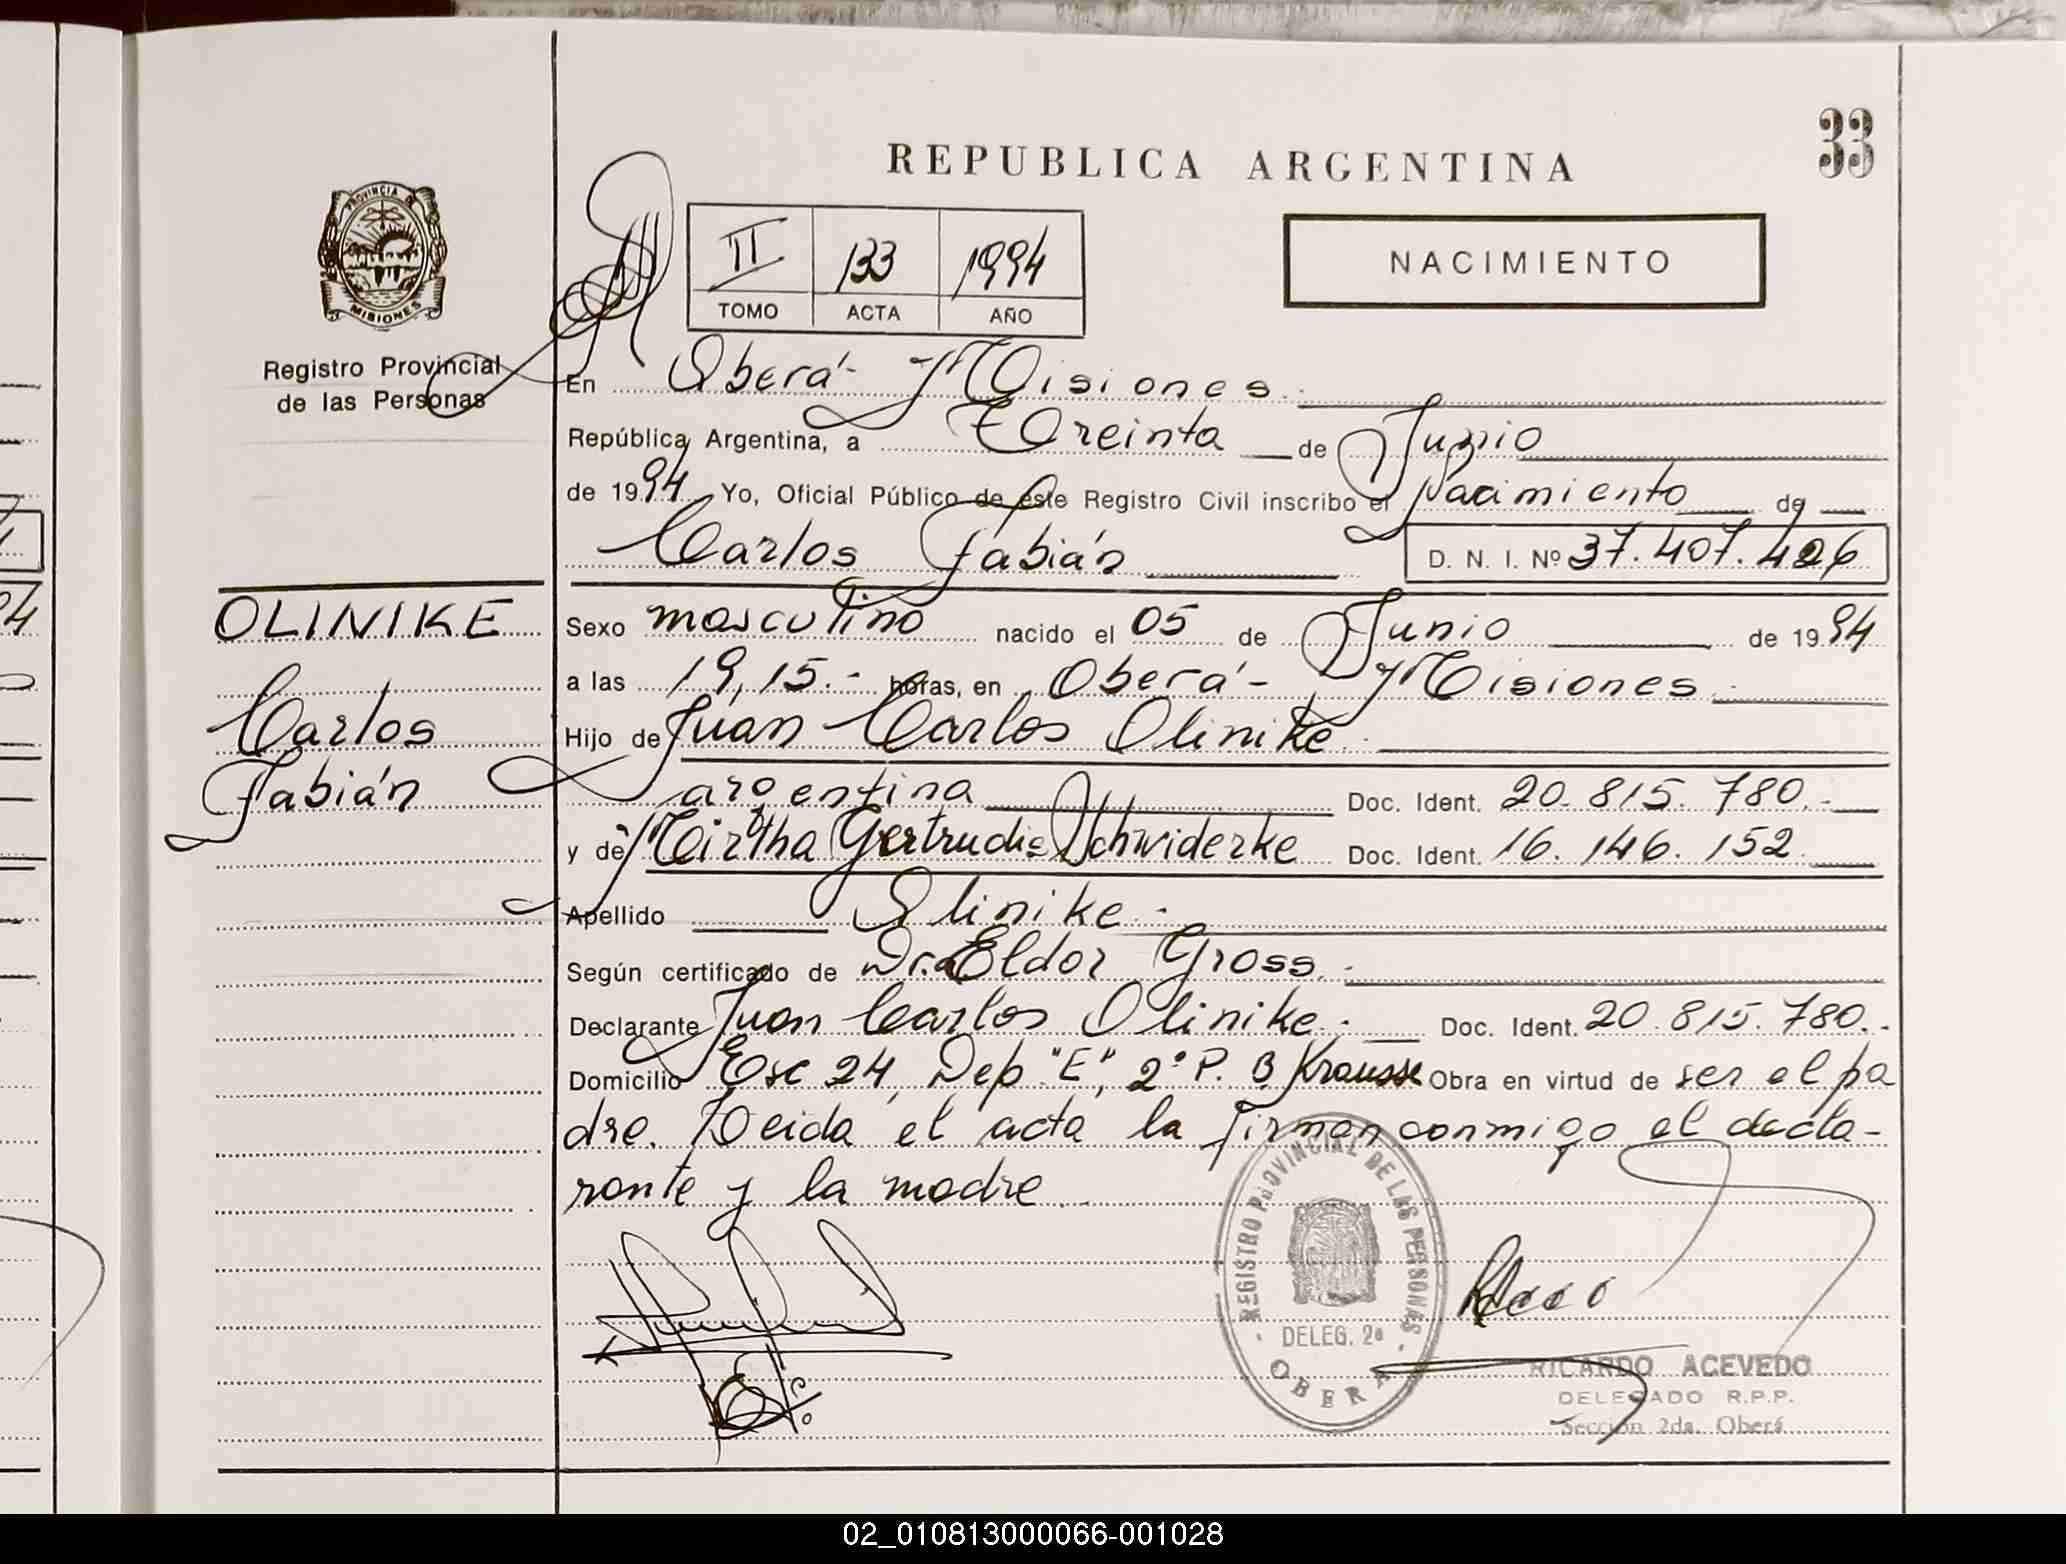 33
REPUBLICA ARGENTINA
PROVINCIA DE
MISIONES
Registro Provincial
de las Personas
II 133 1994
TOMO ACTA AÑO
NACIMIENTO
En Oberá - Misiones.
República Argentina, a Treinta de Junio
de 1994 Yo, Oficial Público de este Registro Civil inscribo el Nacimiento de
Carlos Fabián D. N. I. Nº 37.407.426
OLINIKE
Carlos
Fabián
Sexo masculino nacido el 05 de Junio de 1994
a las 19,15.- horas, en Oberá - Misiones.
Hijo de Juan Carlos Olinike.
argentina Doc. Ident. 20.815.780.-
y de Mirtha Gertrudis Schwiderke Doc. Ident. 16.146.152
Apellido Olinike.-
Según certificado de Dr. Eldor Gross.-
Declarante Juan Carlos Olinike.- Doc. Ident. 20.815.780.-
Domicilio Esc 24, Dep "E", 2º P. B Krausse Obra en virtud de ser el pa
dre. Leida el acta la firman conmigo el decla-
rante y la madre
REGISTRO PROVINCIAL DE LAS PERSONAS
DELEG. 2ª
OBERA
RICARDO ACEVEDO
DELEGADO R.P.P.
Sección 2da. Oberá
02_010813000066-001028